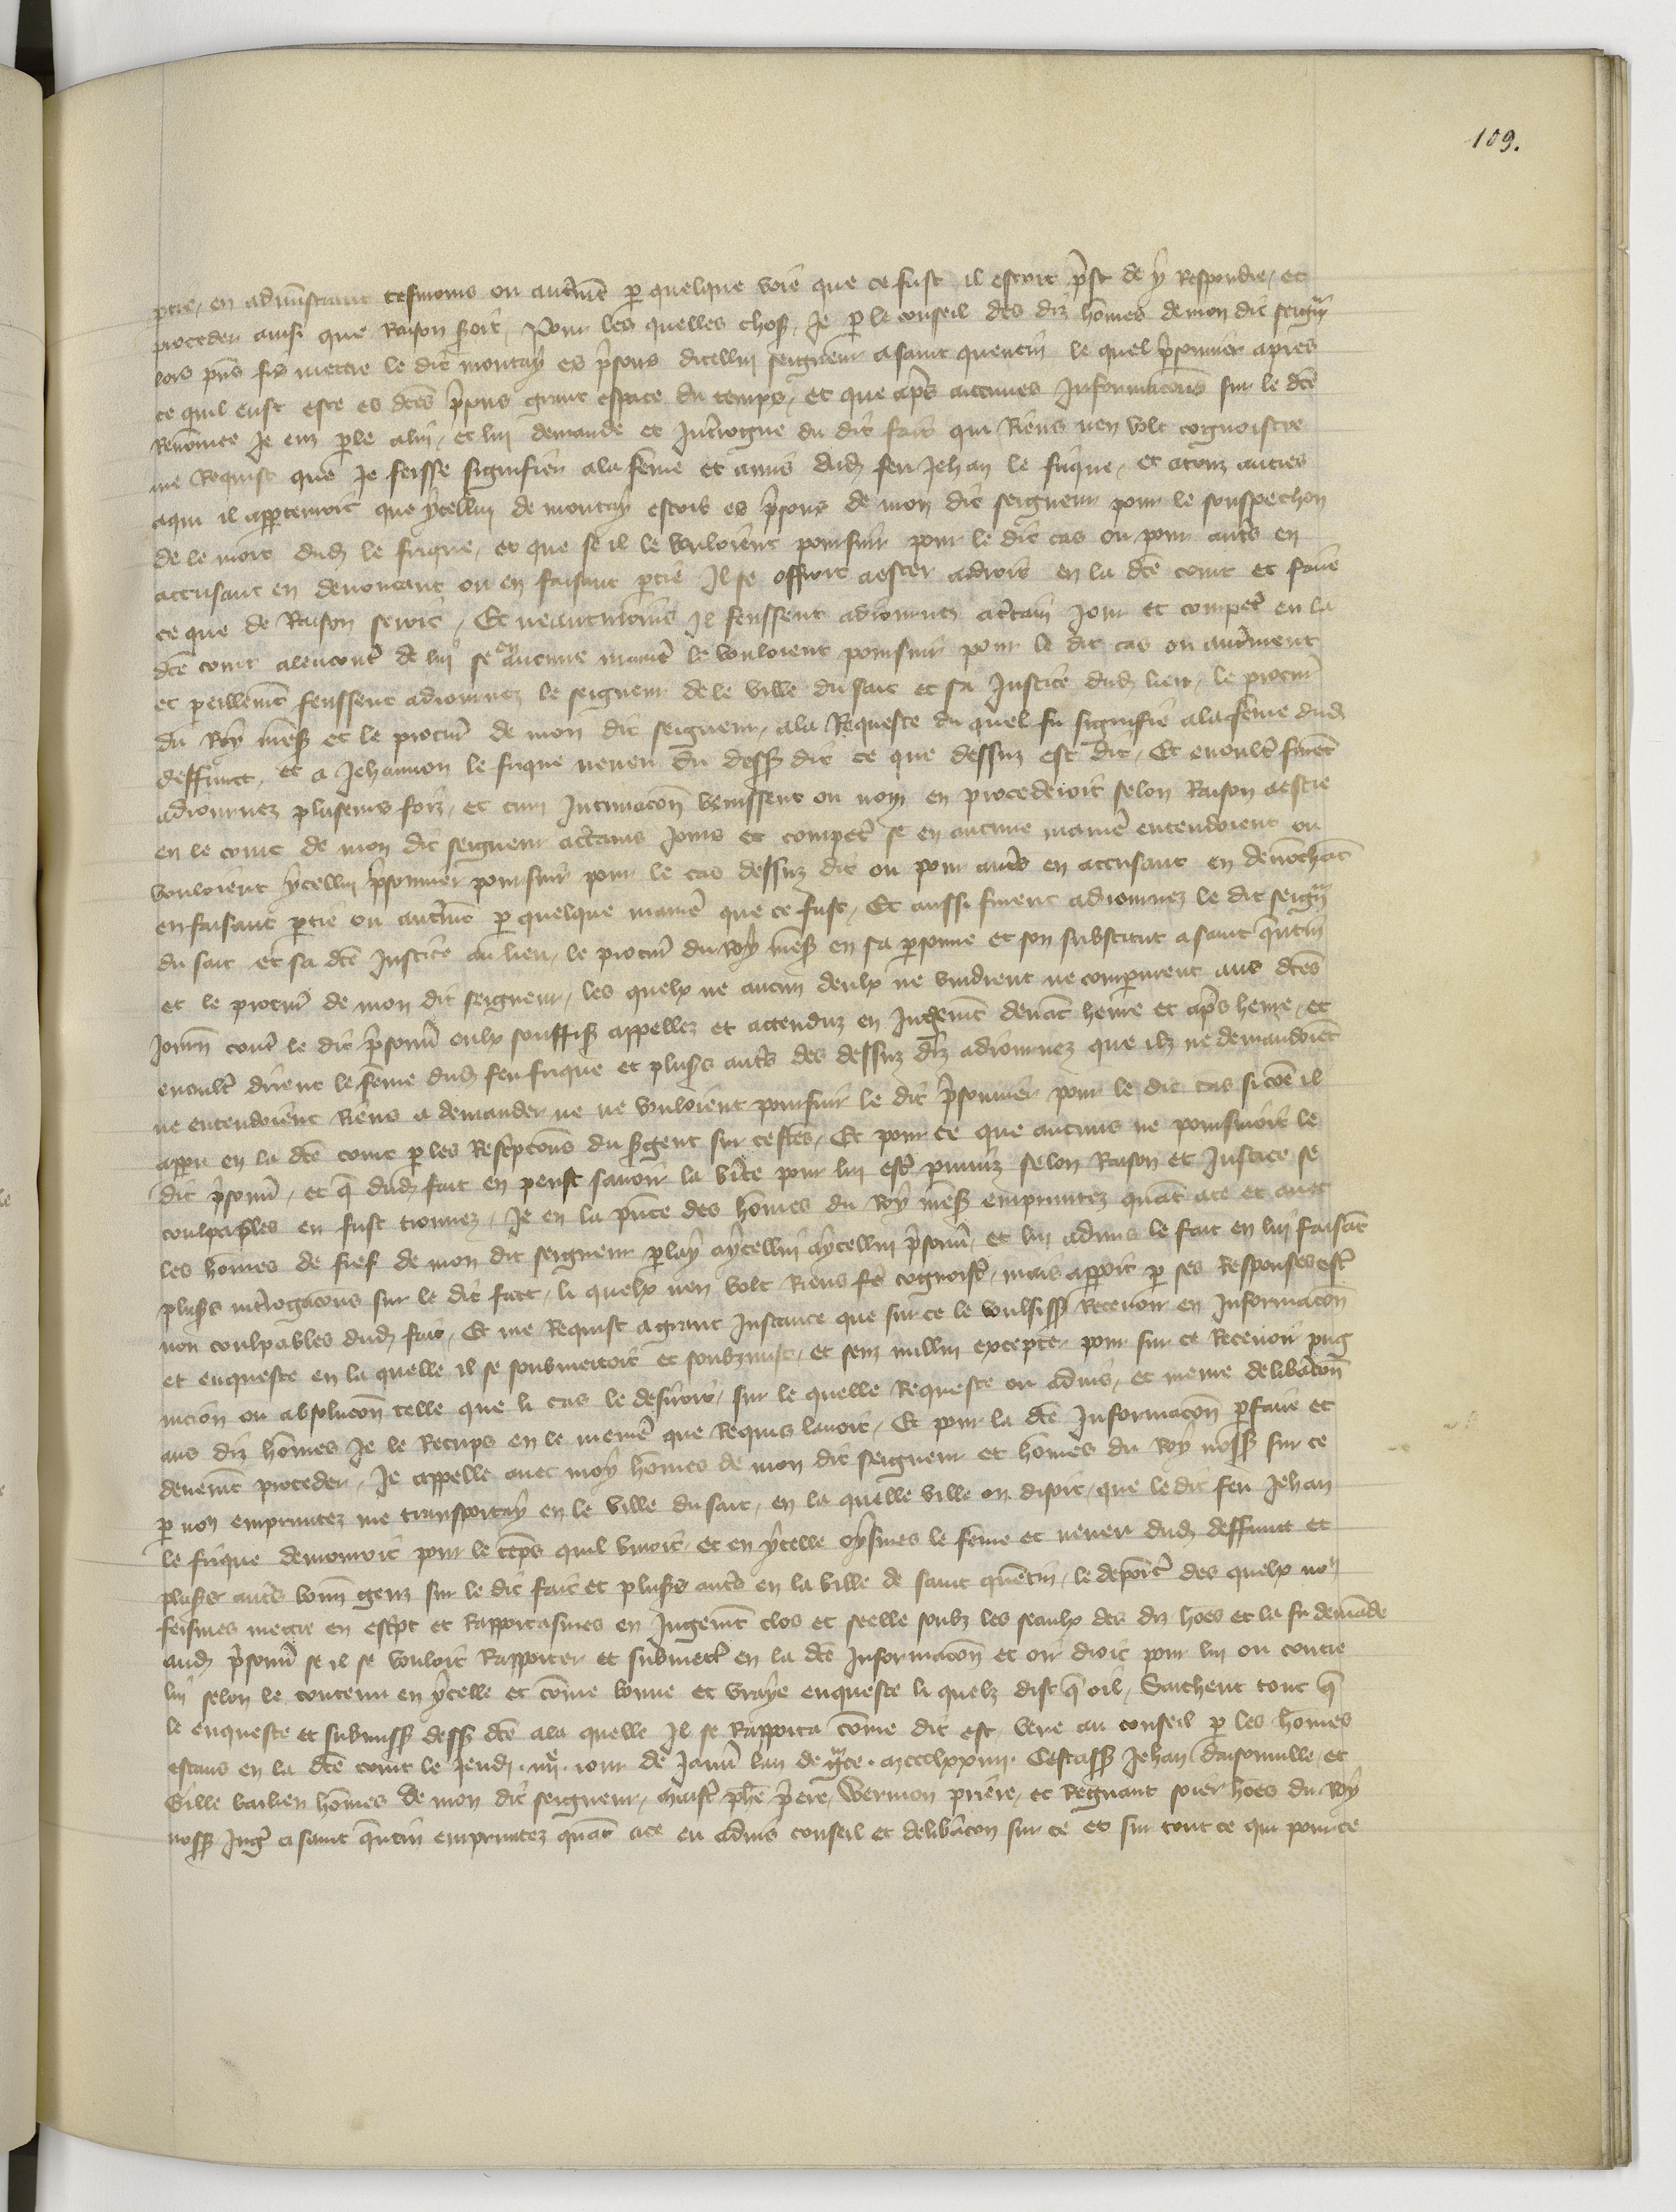 109.
ptie, en admistrant tesmoins ou autremt p quelque voie que ce fust il estoit prest de y Respondre, et
proceder ainsi que Raison soit, Pour les quelles choses, Je p le conseil des diz hommes de mon dit seigneur
lors pns fis mettre le dit montay es prisons dicellui seigneur a saint quentin le quel prisonnier apres
ce quil eust este es dctes prisons grant espace du temps, et que aps aucunes Informacons sur le dcte
Renommee Je euz parle a lui, et lui demande et Interrogue du dit fait qui Riens nen volt cognoistre
me Requist que Je feisse signifier a la femme et amis dud feu Jehan le fuque, et a touz autres
a qui il appartenoit que ycellui de montay estoit es prisons de mon dit seigneur pour le souspechon
de le mort dud le fuque, et que se il le vouloient poursuir pour le dit cas ou pour autres en
accusant en denoncant ou en faisant ptie Il se offroit a ester a droit en la dcte court et faire
ce que de Raison seroit, Et neantmoins Il feussent adiournez a certain Jour et compet en la
dcte court alencontre de lui se en aucune maniere le vouloient poursuir pour le dit cas ou autrement
et pareillemt feussent adiournez le seigneur de le ville du sart et sa Justice dud lieu, le procur
du Roy messe et le procur de mon dit seigneur, a la Requeste du quel fu signifie a la femme dud
deffunct, et a Jehannon le fuque neveu du dessus dit ce que dessus est dit, Et enoultre furent
adiournez pluseurs foiz, et cum Intimacon venissent ou non en procederoit selon Raison a estre
en le court de mon dit seigneur a certains Jours et compet se en aucune maniere entendoient ou
vouloient ycellui prisonnier poursuir pour le cas dessuz dit ou pour autres en accusant en denochant
en faisant ptie ou autremt p quelque maniere que ce fust, Et aussi furent adiournez le dit seigneur
du sart et sa dcte Justice au lieu, le procur du Roy messe en sa personne et son substitut a saint quentin
et le procur de mon dit seigneur, les quelx ne aucun deulx ne vindrent ne comparurent aus dctes
Journ contre le dit prisonnier eulx souffis appellez et attenduz en Jugemt devant heure et aps heure, et
enoultre dirent le femme dud feu fuque et pluss autres des dessuz diz adiournez que ilz ne demandoient
ne entendoient Riens a demander ne ne vouloient poursuir le dit prisonnier pour le dit cas si come il
apparu en la dcte court p les Rescripcons du sergent sur ce fctes, Et pour ce que aucuns ne poursuioit le
dit prisonnier, et que dud fait en peust savoir la verite pour lui estre puniz selon Raison et Justice se
coulpables en fust trouvez, Je en la pnce des hommes du Roy messe empruntez quant a ce et avec
les hommes de fief de mon dit seigneur play a ycellui aycellui prisonnier, et lui admis le fait en lui faisant
pluss interrogacons sur le dit fait, li quelx nen volt Riens fe cognoistre, mais apparoit p ses Responses estre
non coulpables dud fait, Et me Requist a grant Instance que sur ce le voulsisse Recevoir en Informacon
et enqueste en la quelle il se soubmettoit et soubzmist, et senz nullui excepter pour sur ce Recevoir pug
nicion ou absolucon telle que li cas le desiroit, sur le quelle Requeste ou admis, et meure deliberacon
aus diz hommes Je le Receups en le maniere que Requis lavoit, Et pour la dcte Informacon pfaire et
devemt proceder, Je appelle avec moy hommes de mon dit seigneur et hommes du Roy nosse sur ce
p non empruntez me transportay en le ville du sart, en la quelle ville on disoit, que le dit feu Jehan
le fuque demouroit pour le temps quil vivoit, et en ycelle oysmes le femme et neveu dud deffunct et
pluss autres bonn genz sur le dit fait et pluss autres en la ville de saint quentin, le deport des quelx nous
feismes mettre en escript et Rapportasmes en Jugemt clos et seelle soubz les seaulx des diz hoes et la fu demande
aud prisonnier se il se vouloit Rapporter et submettre en la dcte Informacon et oir droit pour lui ou contre
lui selon le contenu en ycelle et comme bonne et vraye enqueste li quelz dist que oil, Sachent tout que
le enqueste et submisse desse dcte a la quelle Il se Rapporta comme dit est, veue au conseil p les hommes
estans en la dcte court le Jeudi .iiij. iour de Janvier lan de grace .mccclxxiiii. Cestasse Jehan Daisonville, et
Gille bailien hommes de mon dit seigneur, maistre phe prere, Wermon priere, et Regnaut soier hoes du Roy
nosse Juge a saint quentin empruntez quant a ce eu admis conseil et deliberacon sur ce et sur tout ce qui pour ce